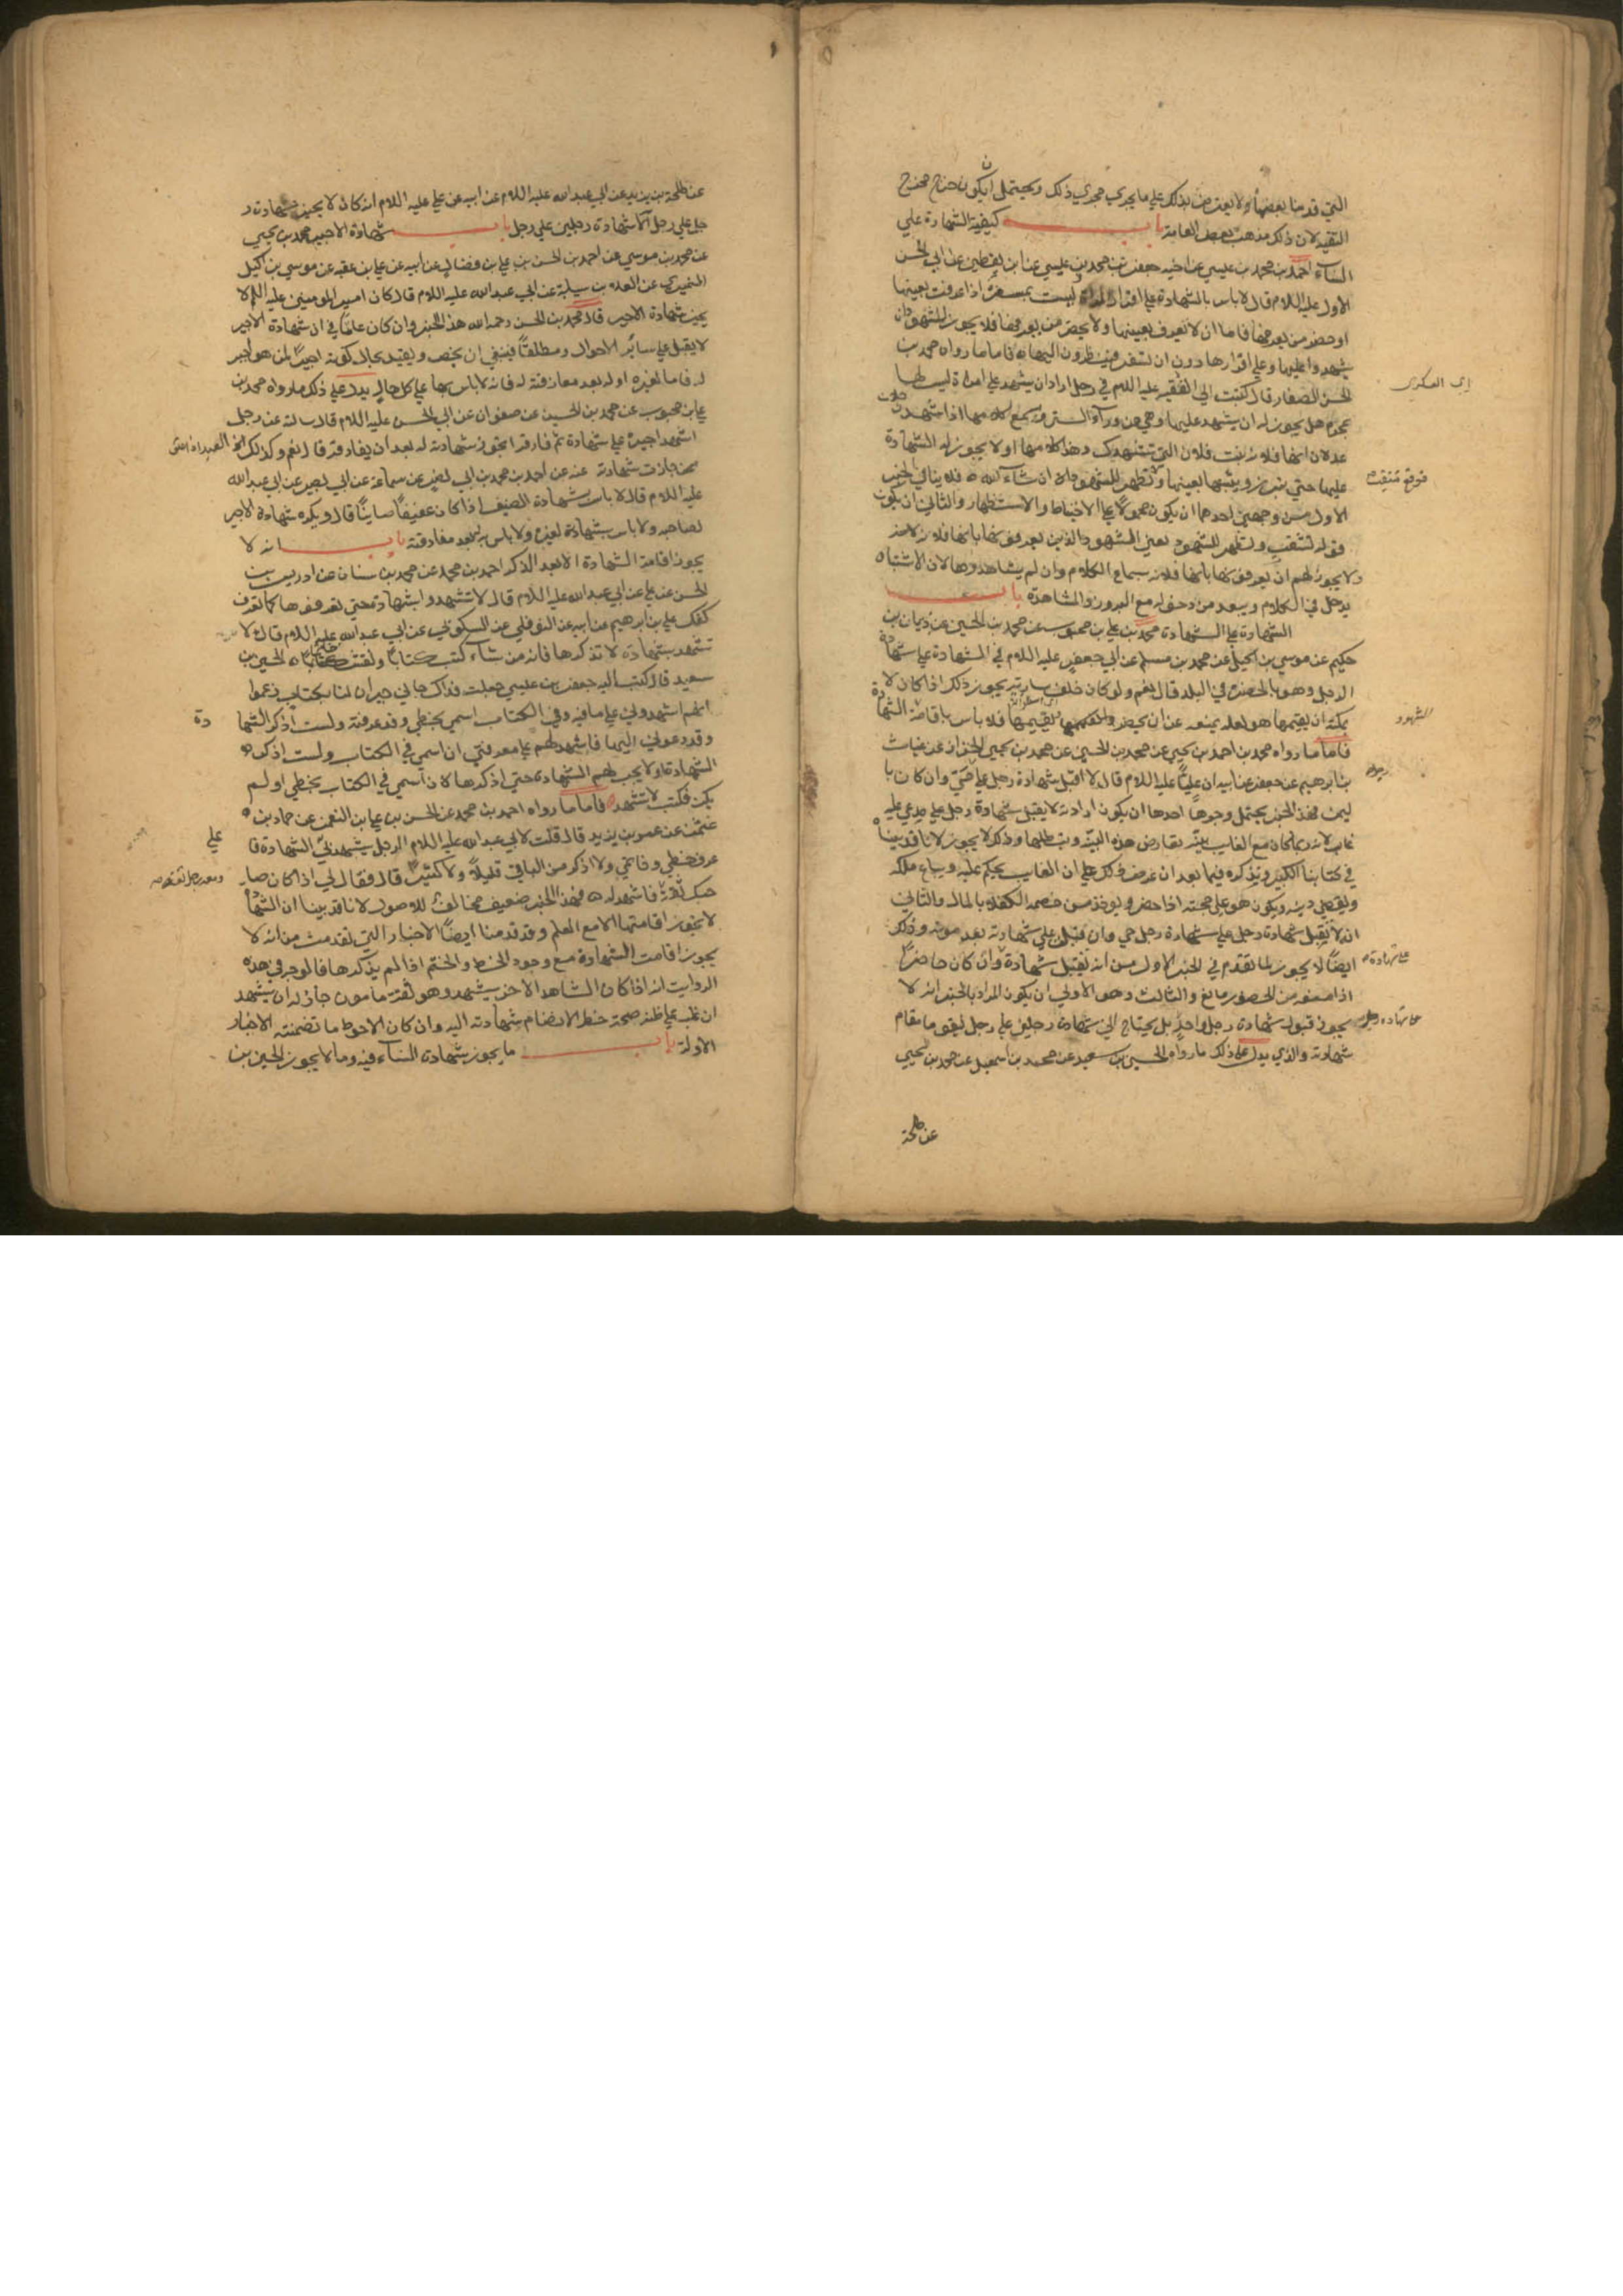 التي قدمنا بعضها ولا يعترض بذلك علي ما يجري مجري ذلك ويحتمل ان يكون خرج مخرج
التقيه لان ذلك مذهب بعض العامة باب كيفية الشهادة علي
النساء احمد بن محمد بن عيسي عن اخيه جعفر بن محمد بن عيسي عن ابن يقطين عن ابي الحسن
الاول عليه اللام قال لا باس بالشهادة علي اقرار المراة وليست بمسفرة اذا عرفت بعينها
او حضر من يعرفها فاما ان لا تعرف بعينها ولا يحضر من يعرفها فلا يجوز للشهود ان
يشهدوا عليها وعلي اقرارها دون ان تسفر وينظرون اليها ه فاما ما رواه محمد بن
الحسن الصفار قال كتبت الي الفقيه عليه اللام في رجل اراد ان يشهد علي امراة ليس لها
اي العسكري
بمحرم هل يجوز له ان يشهد عليها وهي من ورآء الستر ويسمع كلامها اذا شهد رجلان
عدلان انها فلانه بنت فلان التي تشهدك وهذا كلامها او لا يجوز له الشهادة
عليها حتي تبرز ويثبتها بعينها وتظهر للشهود ان شاء الله ه فلا ينافي الخبر
فوقع تتنقب
الاول من وجهين احدهما ان يكون محمولا علي الاحتياط والاستظهار والثاني ان يكون
قوله تتنقب وتظهر للشهود يعني الشهود الذين يعرفونها بانها فلانه لانه
ولا يجوز لهم ان يعرفونها بانها فلانه بسماع الكلام وان لم يشاهدوها لان الاشتباه
يدخل في الكلام ويبعد من دخوله مع البروز والمشاهدة باب
الشهادة علي الشهادة محمد بن علي بن محبوب عن محمد بن الحسين عن ذبيان بن
حكيم عن موسي بن اكيل عن محمد بن مسلم عن ابي جعفر عليه اللام في الشهادة علي شهادة
الرجل وهو بالحضرة في البلد قال نعم ولو كان خلف سارية يجوز ذلك اذا كان لا
يمكنه ان يقيمها هو لعلة يمنعه عن ان يحضر ويقيمها فلا باس باقامة الشهادة
الشهود
فاما ما رواه محمد بن احمد بن يحيي عن محمد بن الحسين عن محمد بن يحيي الخزاز عن غياث
بن ابرهيم عن جعفر عن ابيه ان عليا عليه اللام قال لا اقبل شهادة رجل علي حي وان كان با
ليمن فهذا الخبر يحتمل وجوها احدها ان يكون اراد انه لا يقبل شهادة رجل علي مدعي عليه
غايب لانه ربما كان مع الغايب بينه تعارض هذه البينه وتبطلها وذلك لا يجوز لانا قد بينا
في كتابنا الكبير ونذكره فيما بعد ان عرض ذلك علي ان الغايب يحكم عليه ويباع ملكه
ويقضي دينه ويكون هو علي حجته اذا حضر ويوخذ من خصمه الكفلاء بالمال والثاني
انه لا تقبل شهادة رجل علي شهادة رجل حي وان قبل علي شهادته بعد موته وذلك
ايضا لا يجوز لما تقدم في الخبر الاول من انه تقبل شهادة وان كان حاضرا
علي شهادة
اذا منعه من الحضور مانع والثالث وهو الاولي ان يكون المراد بالخبر انه لا
يجوز قبول شهادة رجل واحد بل يحتاج الي شهادة رجلين علي رجل ليقوما مقام
علي شهادة رجل
شهادته والذي يدل علي ذلك ما رواه الحسين بن سعيد عن محمد بن اسمعيل عن محمد بن يحيي
عن طلحة
عن طلحة بن يزيد عن ابي عبد الله عليه اللام عن ابيه عن علي عليه اللام انه كان لا يجيز شهادة ر
جل علي رجل الا شهادة رجلين علي رجل باب شهادة الاجير محمد بن يحيي
عن محمد بن موسي عن احمد بن الحسن بن علي بن فضال عن ابيه عن علي بن عقبه عن موسي بن اكيل
النميري عن العلاء بن سيابة عن ابي عبد الله عليه اللام قال كان امير المومنين عليه اللام لا
يجيز شهادة الاجير قال محمد بن الحسن رحمه الله هذا الخبر وان كان عاما في ان شهادة الاجير
لا يقبل علي سائر الاحوال ومطلقا فينبغي ان يخص ويقيد بحال كونه اجيرا لمن هو اجير
له فاما لغيره او له بعد مفارقته له فانه لا باس بها علي كل حال يدل علي ذلك ما رواه محمد بن
علي بن محبوب عن محمد بن الحسين عن صفوان عن ابي الحسن عليه اللام قال سالته عن رجل
اشهد اجيره علي شهادة ثم فارقه اتجوز شهادته له بعد ان يفارقه قال نعم وكذلك العبد اذا اعتق
جازت شهادته عنه عن احمد بن محمد بن ابي نصر عن سماعة عن ابي بصير عن ابي عبد الله
عليه اللام قال لا باس بشهادة الضيف اذا كان عفيفا صاينا قال ويكره شهادة الاجير
لصاحبه ولا باس بشهادة لغيره ولا باس به بعد مفارقته باب انه لا
يجوز اقامة الشهادة الا بعد الذكر احمد بن محمد عن محمد بن سنان عن ادريس بن
الحسن عن علي عن ابي عبد الله عليه اللام قال لا تشهدوا بشهادة حتي تعرفوها كما تعرف
كفك علي بن ابرهيم عن ابيه عن النوفلي عن السكوني عن ابي عبد الله عليه اللام قال لا
تشهد بشهادة لا تذكرها فانه من شاء كتب كتابا ونقش خاتما ه الحسين بن
سعيد قال كتب اليه جعفر بن عيسي جعلت فداك جاني جيران لنا بكتاب زعموا
انهم اشهدوني علي ما فيه وفي الكتاب اسمي بخطي وقد عرفته ولست اذكر الشها
دة
وقد دعوني اليها فاشهد لهم علي معرفتي ان اسمي في الكتاب ولست اذكر
الشهادة او لا يجب لهم الشهادة حتي اذكرها كان اسمي في الكتاب بخطي او لم
يكن فكتب لا تشهد ه فاما ما رواه احمد بن محمد عن الحسن بن علي بن النعمن عن حماد بن
عثمن عن عمر بن يزيد قال قلت لابي عبد الله عليه اللام الرجل يشهدني الشهادة فا
علي
عرف خطي وخاتمي ولا اذكر من الباقي قليلا ولا كثيرا قال فقال لي اذا كان صا
ومعه رجل ثقة
حبك ثقة فاشهد له ه فهذا الخبر ضعيف مخالف للاصول لانا قد بينا ان الشهادة
لا يجوز اقامتها الا مع العلم وقد قدمنا ايضا الاخبار التي تقدمت من انه لا
يجوز اقامت الشهادة مع وجود الخط والختم اذا لم يذكرها فالوجه في هذه
الروايت انه اذا كان الشاهد الاخر يشهد وهو ثقة مامون جاز له ان يشهد
ان غلب علي ظنه صحة خطه لانضمام شهادته اليه وان كان الاحوط ما تضمنته الاخبار
الاولة باب ما يجوز شهادة النساء فيه وما لا يجوز الحسين بن